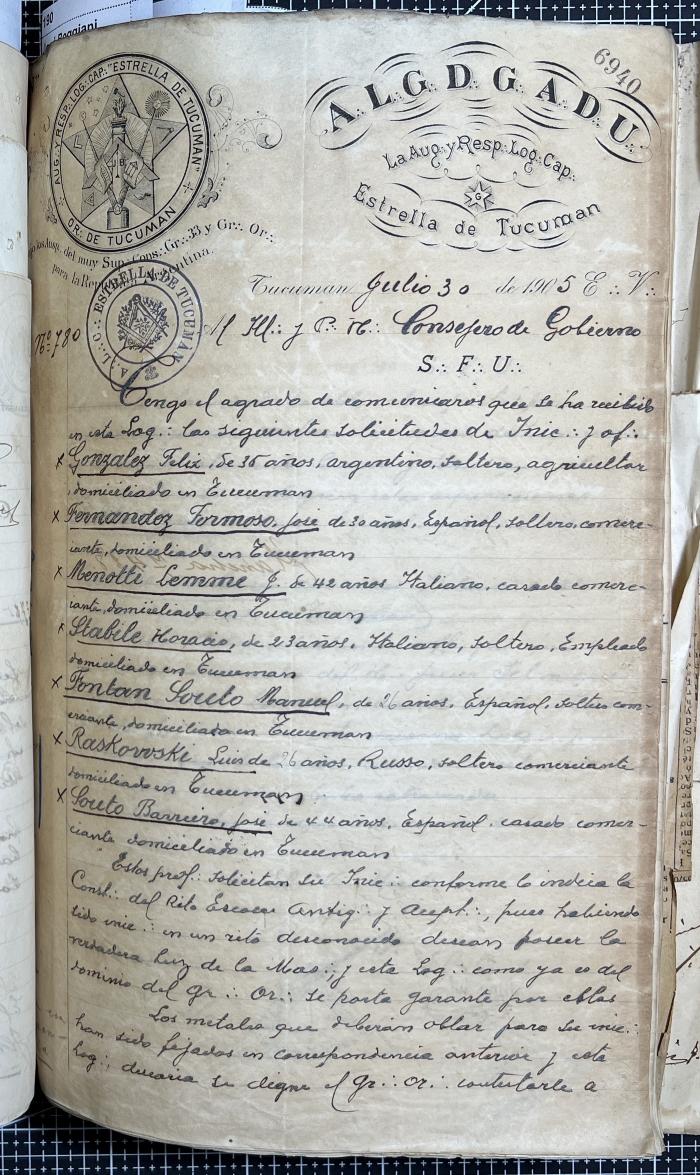 190
Poggiani
6940
AUG∴ Y RESP∴ LOG∴ CAP∴ "ESTRELLA DE TUCUMAN"
OR∴ DE TUCUMAN
A∴L∴G∴D∴G∴A∴D∴U∴
La Aug∴ y Resp∴ Log∴ Cap∴
G
Estrella de Tucuman
los Ausp. del muy Sup∴ Cons∴ Gr∴ 33 y Gr∴ Or∴
para la República Argentina.
A∴L∴C∴ ESTRELLA DE TUCUMAN
Tucuman Julio 30 de 1905 E∴V∴
Nº 780
Al Il∴ y P∴ H∴ Consejero de Gobierno
S∴ F∴ U∴
Tengo el agrado de comunicaros que se ha recibido
en esta Log∴ las siguientes solicitudes de Inic∴ y af∴
x Gonzalez Felix, de 35 años, argentino, soltero, agricultor
domiciliado en Tucuman
x Fernandez Formoso, José de 30 años, Español, soltero, comerc-
iante, domiciliado en Tucuman
x Menotti Lemme J. de 42 años Italiano, casado comerc-
iante, domiciliado en Tucuman
x Stabile Horacio, de 23 años, Italiano, soltero, Empleado
domiciliado en Tucuman
x Fontan Souto Manuel, de 26 años, Español, soltero com-
erciante, domiciliado en Tucuman
x Raskovvski Luis de 26 años, Russo, soltero comerciante
domiciliado en Tucuman
x Souto Barreiro, José de 44 años, Español, casado comer-
ciante domiciliado en Tucuman
Estos prof∴ solicitan su Inic∴ conforme lo indica la
Const∴ del Rito Escoces Antig∴ y Acept∴, pues habiendo
sido inic∴ en un rito desconocido desean poseer la
verdadera luz de la Mas∴ y esta Log∴ como ya es del
dominio del Gr∴ Or∴ se porta garante por ellos
Los metales que deberán oblar para su inic∴
han sido fijados en correspondencia anterior y esta
Log∴, desearia se digne el Gr∴ Or∴ contestarle a